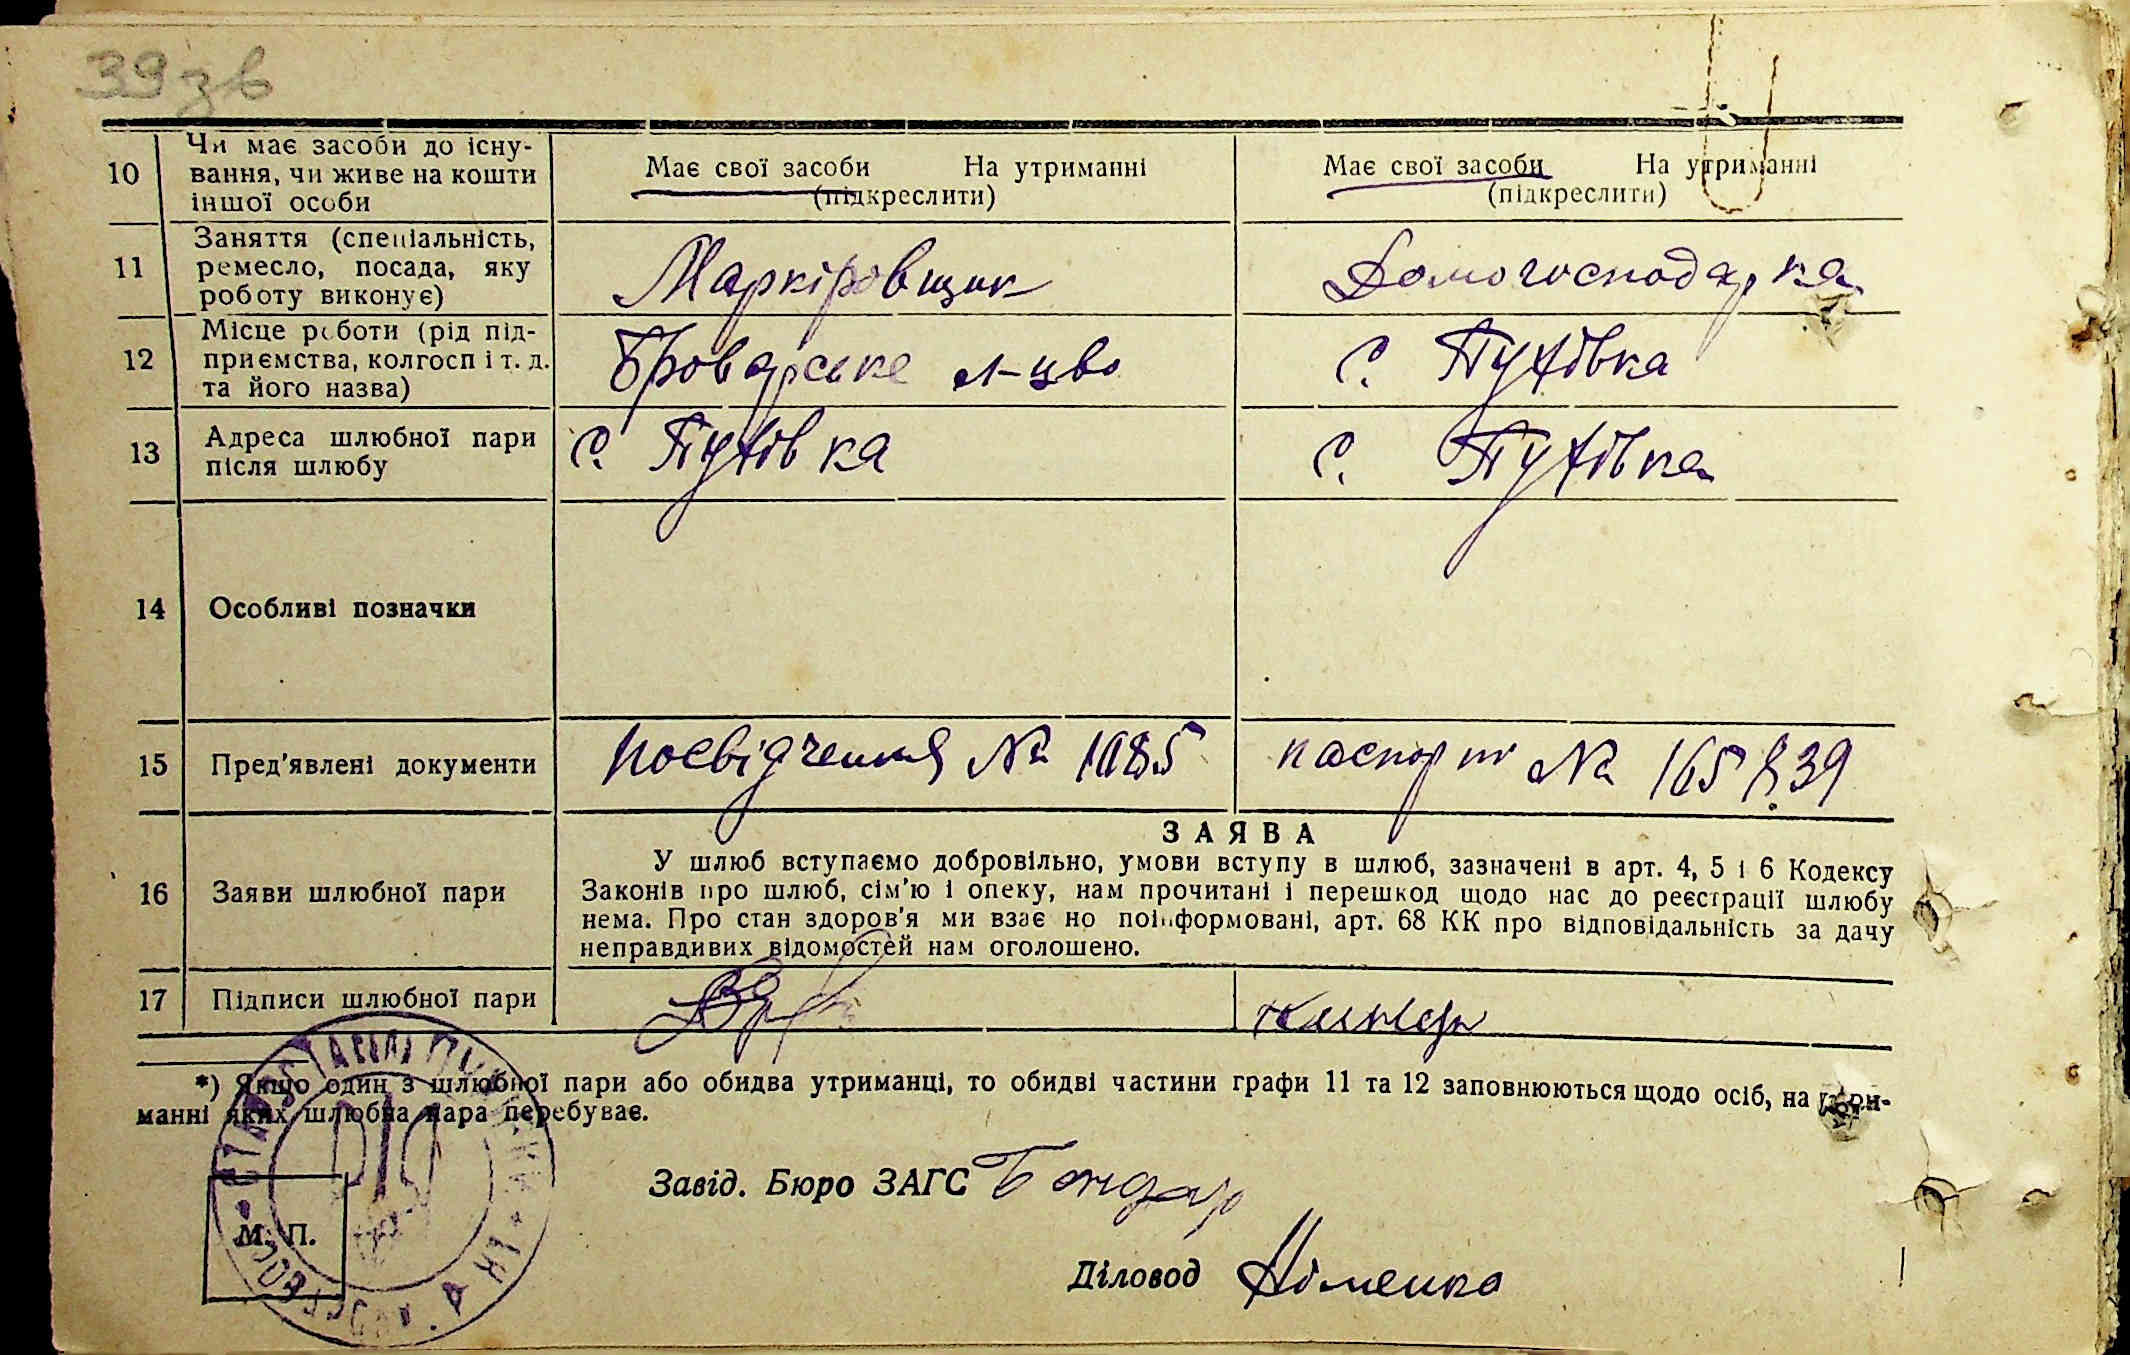 39 зв
10 Чи має засоби до існу-
вання, чи живе на кошти
іншої особи
Має свої засоби На утриманні
(підкреслити)
Має свої засоби На утриманні
(підкреслити)
11 Заняття (спеціальність,
ремесло, посада, яку
роботу виконує)
Маркіровщик
Домогосподарка
12 Місце роботи (рід під-
приємства, колгосп і т. д.
та його назва)
Броварське л-цво
с. Пухівка
13 Адреса шлюбної пари
після шлюбу
с. Пухівка
с. Пухівка
14 Особливі позначки
15 Пред'явлені документи
посвідчення № 1085
паспорт № 165839
16 Заяви шлюбної пари
ЗАЯВА
У шлюб вступаємо добровільно, умови вступу в шлюб, зазначені в арт. 4, 5 і 6 Кодексу
Законів про шлюб, сім'ю і опеку, нам прочитані і перешкод щодо нас до реєстрації шлюбу
нема. Про стан здоров'я ми взаємно поінформовані, арт. 68 КК про відповідальність за дачу
неправдивих відомостей нам оголошено.
17 Підписи шлюбної пари
*) Якщо один з шлюбної пари або обидва утриманці, то обидві частини графи 11 та 12 заповнюються щодо осіб, на утри-
манні яких шлюбна пара перебуває.
Завід. Бюро ЗАГС Бондар
М. П.
Діловод Німенко